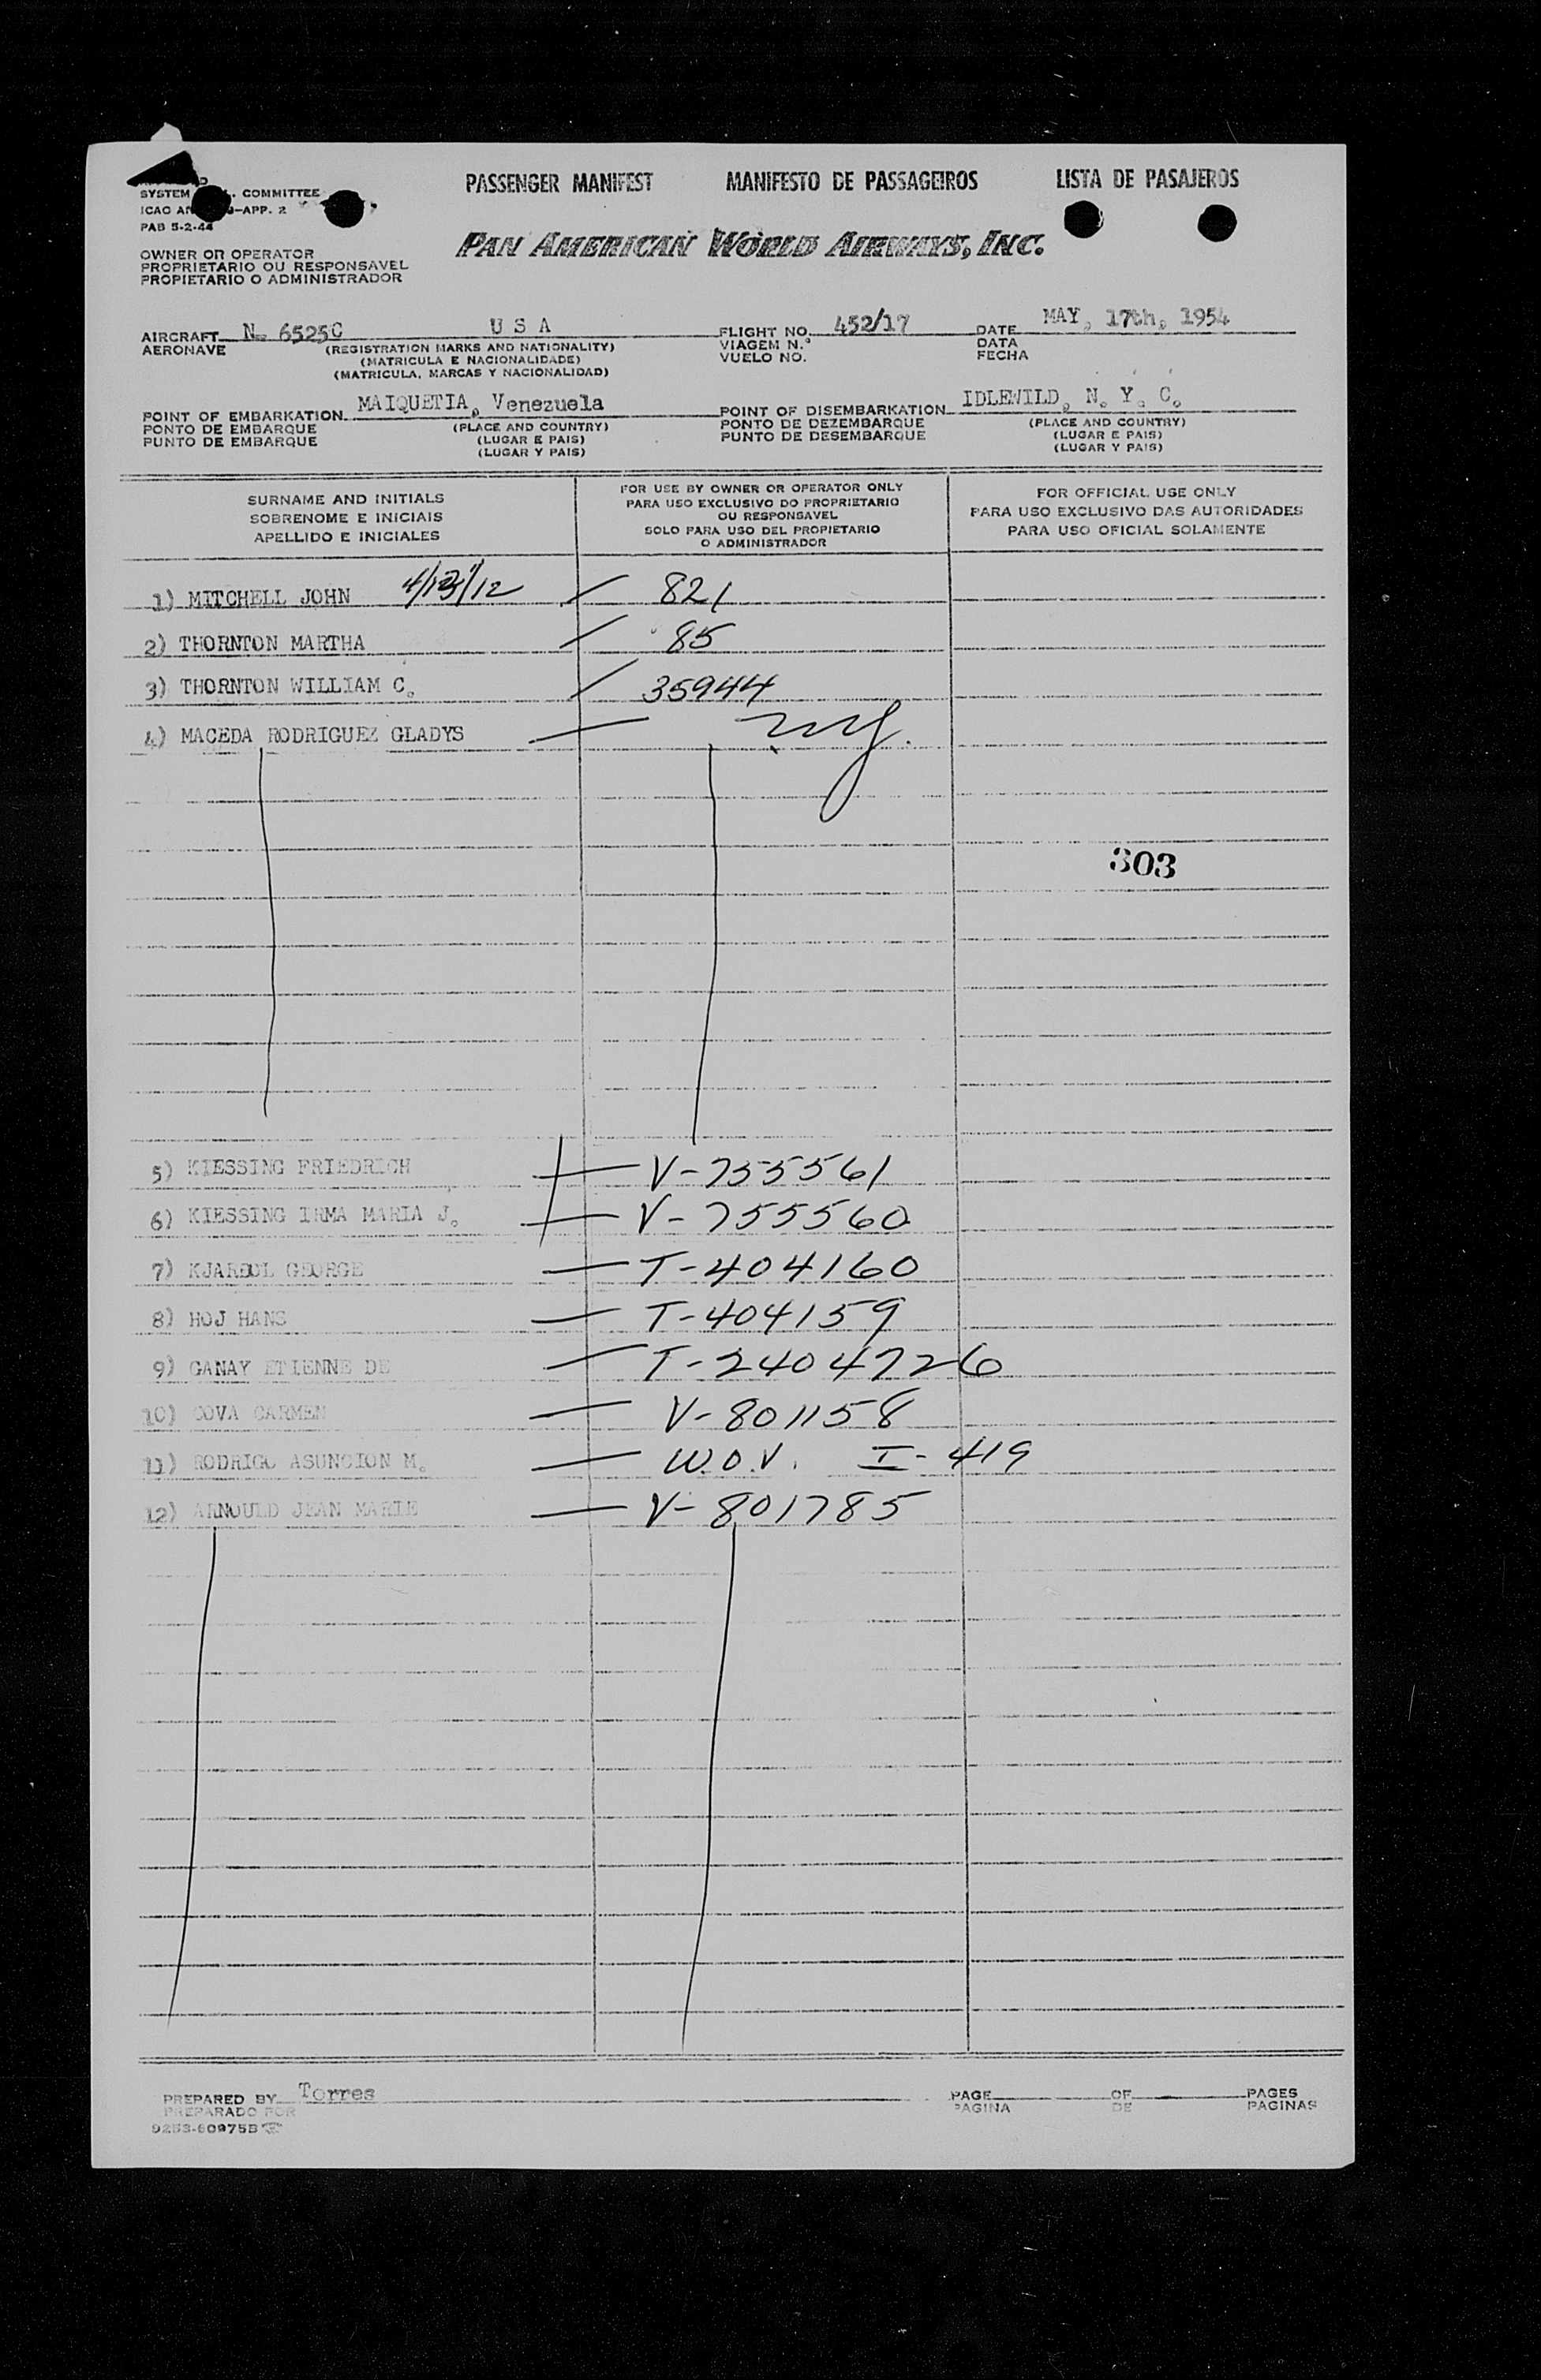 PASSENGER MANIFEST MANIFESTO DE PASSAGEIROS LISTA DE PASAJEROS
SYSTEM COMMITTEE
ICAO AN -APP. 2
PAB 5-2-44
PAN AMERICAN WORLD AIRWAYS, INC.
OWNER OR OPERATOR
PROPRIETARIO OU RESPONSAVEL
PROPIETARIO O ADMINISTRADOR
AIRCRAFT N. 6525C U S A FLIGHT NO. 452/17 DATE MAY, 17th, 1954
AERONAVE (REGISTRATION MARKS AND NATIONALITY) VIAGEM N.º DATA
(MATRICULA E NACIONALIDADE) VUELO NO. FECHA
(MATRICULA, MARCAS Y NACIONALIDAD)
POINT OF EMBARKATION MAIQUETIA, Venezuela POINT OF DISEMBARKATION IDLEWILD, N. Y. C.
PONTO DE EMBARQUE (PLACE AND COUNTRY) PONTO DE DEZEMBARQUE (PLACE AND COUNTRY)
PUNTO DE EMBARQUE (LUGAR E PAIS) PUNTO DE DESEMBARQUE (LUGAR E PAIS)
(LUGAR Y PAIS) (LUGAR Y PAIS)
SURNAME AND INITIALS
SOBRENOME E INICIAIS
APELLIDO E INICIALES
FOR USE BY OWNER OR OPERATOR ONLY
PARA USO EXCLUSIVO DO PROPRIETARIO
OU RESPONSAVEL
SOLO PARA USO DEL PROPIETARIO
O ADMINISTRADOR
FOR OFFICIAL USE ONLY
PARA USO EXCLUSIVO DAS AUTORIDADES
PARA USO OFICIAL SOLAMENTE
1) MITCHELL JOHN 4/13/12 821
2) THORNTON MARTHA 85
3) THORNTON WILLIAM C. 35944
4) MACEDA RODRIGUEZ GLADYS
303
5) KIESSING FRIEDRICH V-755561
6) KIESSING IRMA MARIA J. V-755560
7) KJARBOL GEORGE T-404160
8) HOJ HANS T-404159
9) GANAY ETIENNE DE T-2404726
10) COVA CARMEN V-801158
11) RODRIGO ASUNCION M. W.O.V. I-419
12) ARNOULD JEAN MARIE V-801785
PREPARED BY Torres PAGE OF PAGES
PREPARADO POR PAGINA DE PAGINAS
9253-60975B